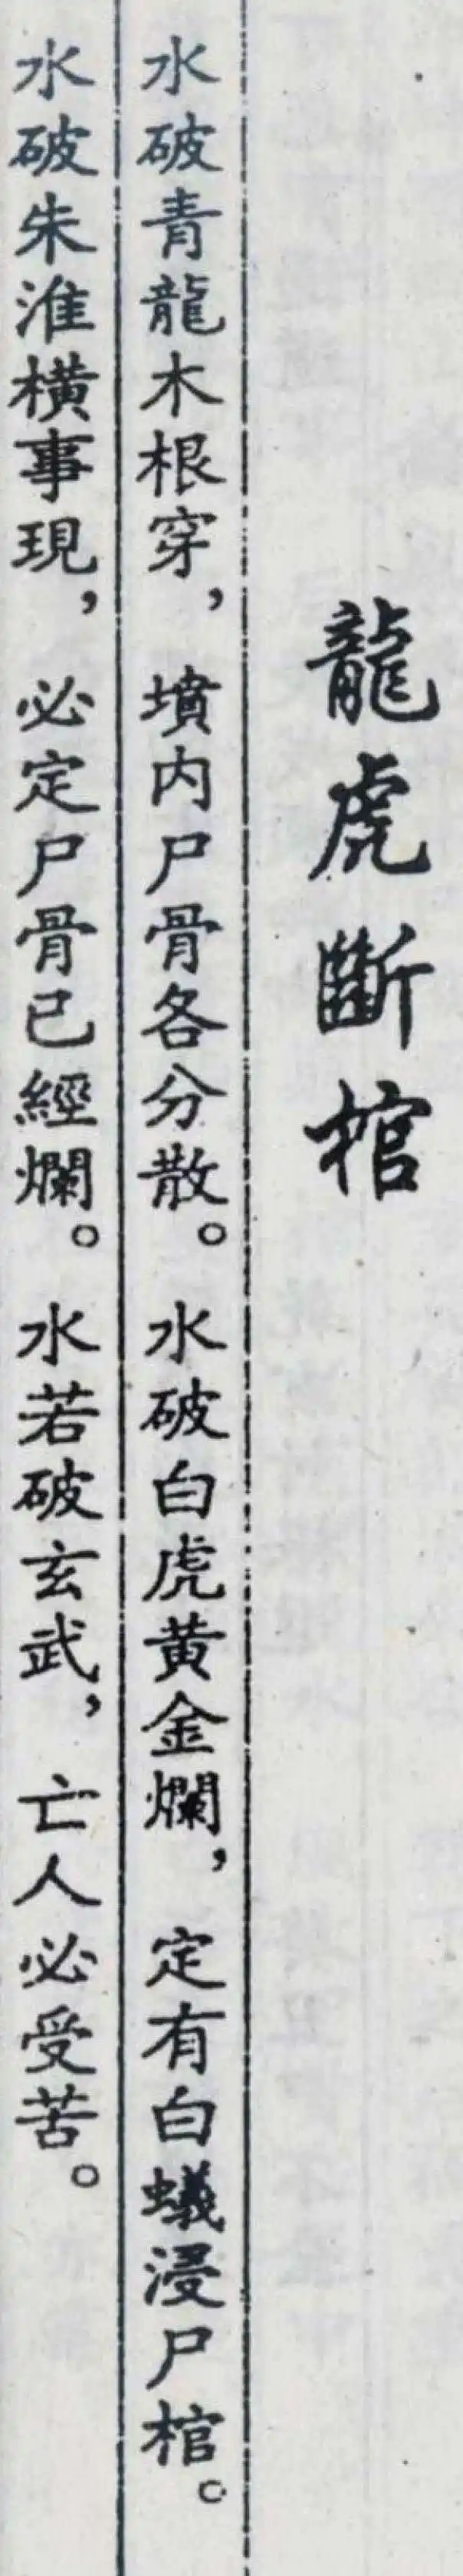 龍虎斷棺
水破青龍木根穿，墳内尸骨各分散。水破白虎黄金爛，定有白蟻浸尸棺。
水破朱淮橫事現，必定尸骨已經爛。水若破玄武，亡人必受苦。